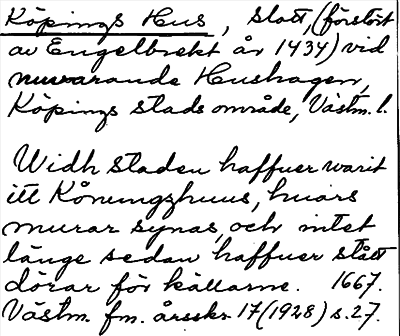 Köpings Hus, slott, (förstört
av Engelbrekt år 1434) vid
nuvarande Hushagen,
Köpings stads område, Västm. l.
Widh staden haffuer warit
itt Konungzhuus, huars
murar synas, och intet
länge sedan haffuer stått
dörar för källarne. 1667.
Västm. fm. årsskr. 17 (1928) s. 27.